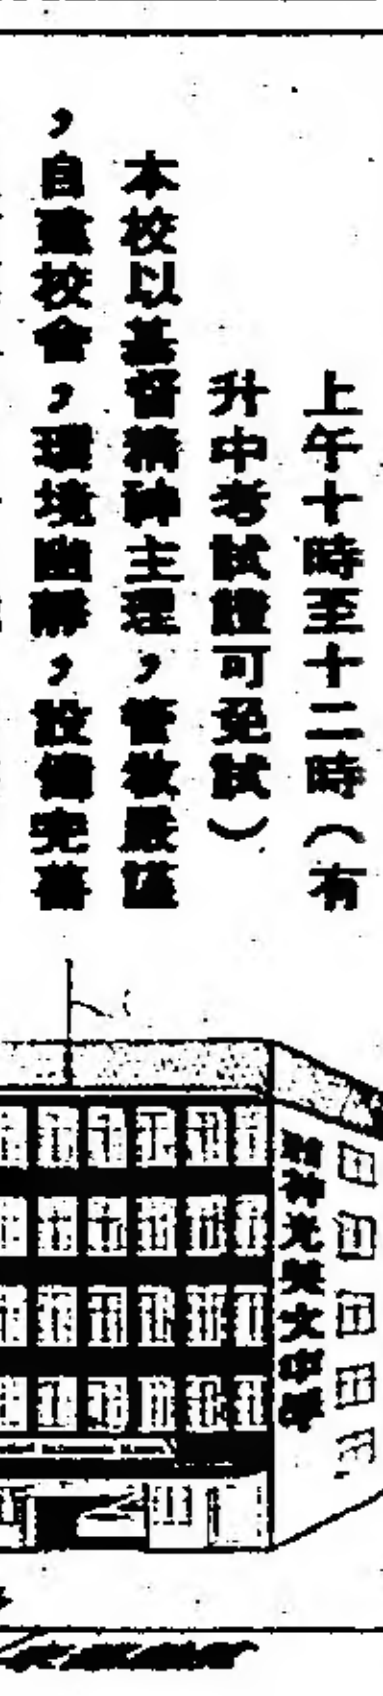 上午十時至十二時（有
升中考試證可免試）
本校以基督精神主理，管教嚴謹
，自建校舍，環境幽靜，設備完善
神光英文中學